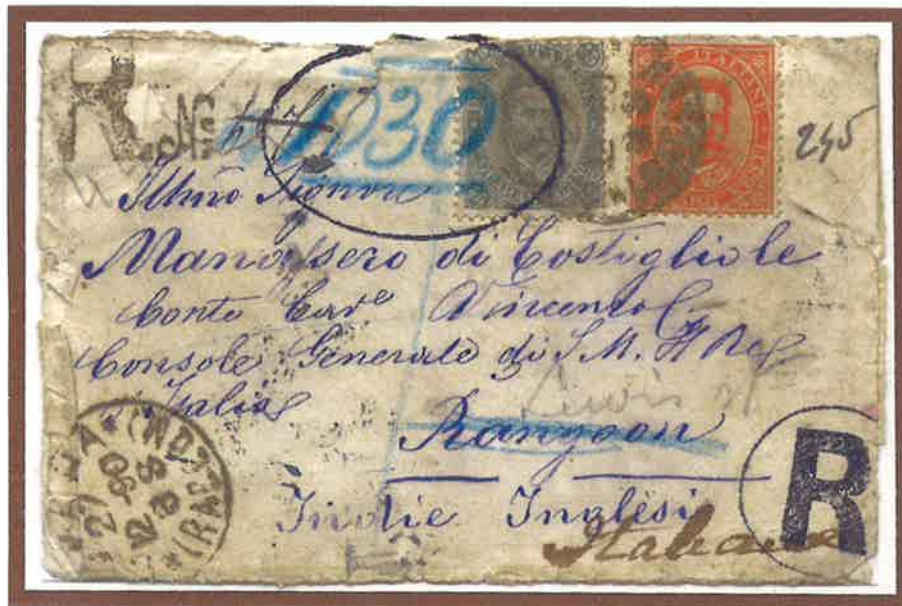 R No 1030
245
Illmo Signore
Manassero di Costigliole
Conte Cave Vincenzo
Console Generale di S. M. il Re
Italia
Lewis
Rangoon
Indie Inglesi
Italian
R